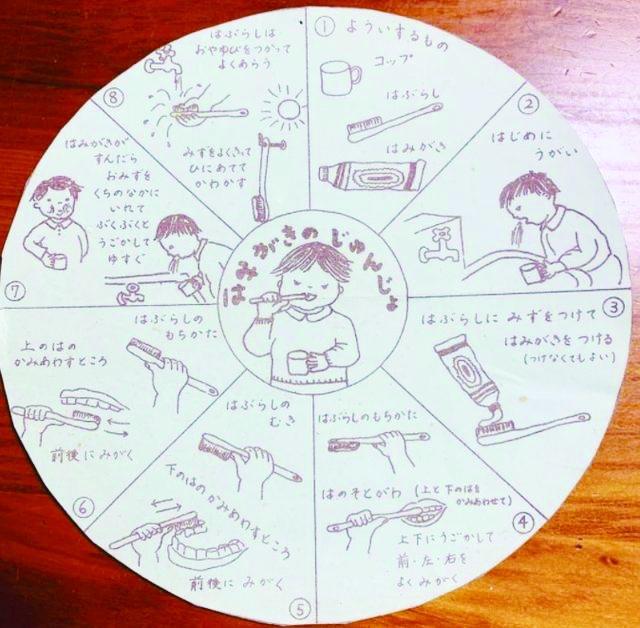 はみがきのじゅんじょ
①
よういするもの
コップ
はぶらし
はみがき
②
はじめに
うがい
③
はぶらしに みずをつけて
はみがきをつける
(つけなくてもよい)
④
はぶらしのもちかた
はのそとがわ (上と下のはを
かみあわせて)
上下にうごかして
前・左・右を
よくみがく
⑤
はぶらしの
むき
下のはのかみあわすところ
前後にみがく
⑥
はぶらしの
もちかた
上のはの
かみあわすところ
前後にみがく
⑦
はみがきが
すんだら
おみずを
くちのなかに
いれて
ぶくぶくと
うごかして
ゆすぐ
⑧
はぶらしは
おやゆびをつかって
よくあらう
みずをよくきって
ひにあてて
かわかす